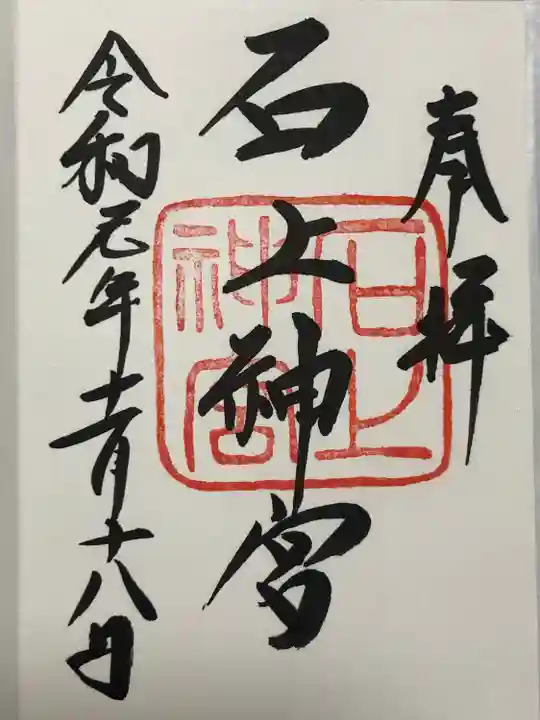 奉拝
石上神宮
石上神宮
令和元年十一月十八日